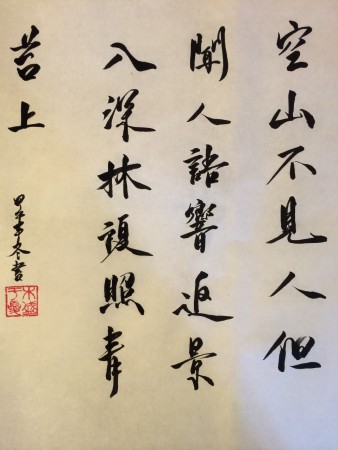 空山不見人但
聞人語響返景
入深林復照青
苔上
冬書